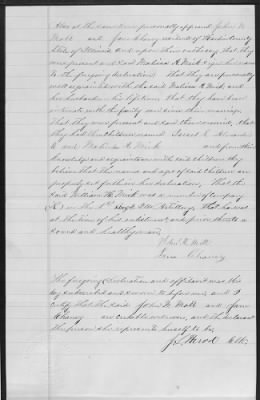 Also at the same time personally appeared John N.
Mott and Jane Chaney residents of
State of Illinois and upon their oaths say that they
were present and saw Malissa A. Mink sign her name
to the foregoing declaration that they are personally
well acquainted with the said Malissa A. Mink and
her husband in his lifetime that they have been
with the family ever since their marriage
that they were present and saw them married, that
they had the children named
& and Malissa A. Mink and from their
knowledge and acquaintance with said children they
believe that the names and ages of said children are
properly set forth in her declaration, That the
said William Mink was a member of Company
K in the 1st Ill Artillery that he was
at the time of his enlistment and prior thereto a
sound and healthy man
John N. Mott
Jane Chaney
The foregoing Declaration and affidavit was this
day subscribed and sworn to before me and I
certify that the said John N. Mott and Jane
Chaney are credible witnesses, and the declarant
the person she represents herself to be
Clk